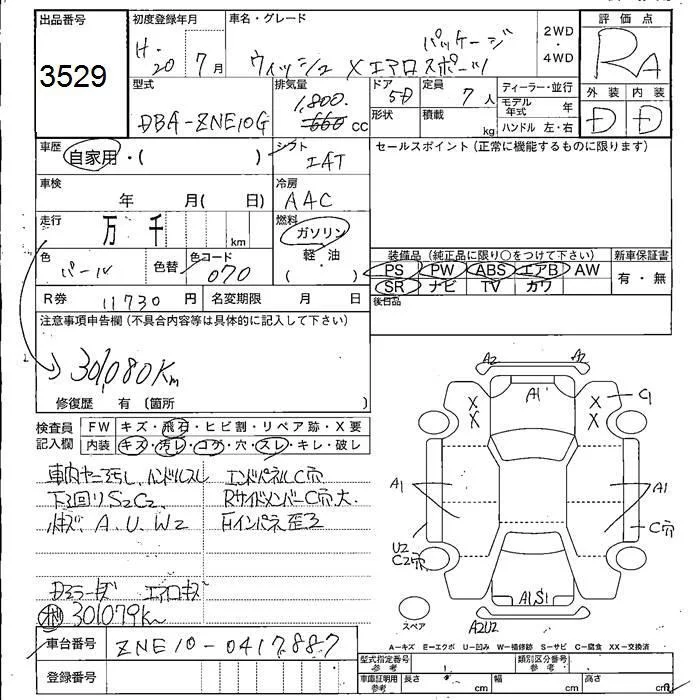 出品番号
3529
初度登録年月
H. 20 7 月
車名・グレード
パッケージ
ウィッシュ X エアロスポーツ
2WD
・
4WD
評価点
RA
外装 内装
D D
型式
DBA-ZNE10G
排気量
1,800.
660 cc
ドア
5D
形状
定員
7 人
積載
kg
ディーラー・並行
モデル年式 年
ハンドル 左・右
車歴
自家用・( )
シフト
IAT
セールスポイント(正常に機能するものに限ります)
車検
年 月( 日)
冷房
AAC
走行
万 千 km
燃料
ガソリン
軽・油
( )
色
パール
色替
色コード
070
装備品(純正品に限り○をつけて下さい)
PS PW ABS エアB AW
SR ナビ TV カワ
新車保証書
有・無
後日品
R券 11730 円
名変期限 月 日
注意事項申告欄(不具合内容等は具体的に記入して下さい)
301,080Km
修復歴 有(箇所 )
検査員
記入欄
FW キズ・飛石・ヒビ割・リペア跡・X要
内装 キズ・汚レ・コゲ・穴・スレ・キレ・破レ
車内ヤニ汚し、ハンドルスレ
エンドパネルC穴
下回りS2C2、
Rサイドメンバー C穴大.
A.U.W2
Fインパネ歪3
Dミラーキズ エアロキズ
301079Km
A2 A2
A1
C1
X X
X X
A1 A1
C穴
U2
C2穴
A1S1
A2U2
スペア
A-キズ E-エクボ U-凹み W-補修跡 S-サビ C-腐食 XX-交換済
車台番号
ZNE10-0417887
登録番号
型式指定番号
参考
類別区分番号
参考
車庫証明用
参考
長さ cm
幅 cm
高さ cm